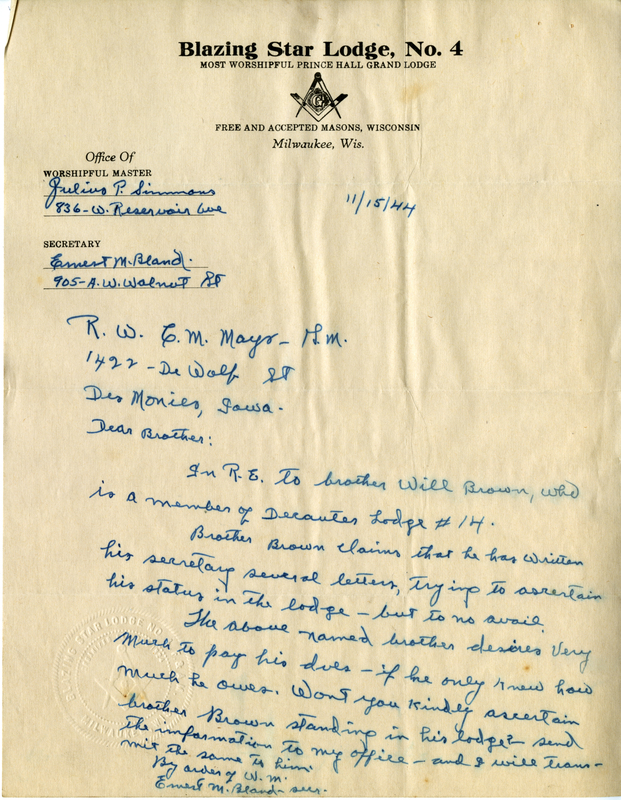 Blazing Star Lodge, No. 4
MOST WORSHIPFUL PRINCE HALL GRAND LODGE
G
FREE AND ACCEPTED MASONS, WISCONSIN
Milwaukee, Wis.
Office Of
WORSHIPFUL MASTER
Julius P. Simmons
836-W. Reservoir Ave
11/15/44
SECRETARY
Ernest M. Bland.
905-A. W. Walnut St
R. W. C. M. Mays - G.M.
1422 - De Wolf St
Des Monies, Iowa.
Dear Brother:
In R.E. to brother Will Brown, who
is a member of Decauter Lodge # 14.
Brother Brown claims that he has written
his secretary several letters, trying to ascertain
his status in the lodge - but to no avail.
The above-named brother desires very
much to pay his dues - if he only knew how
much he owes. Wont you kindly ascertain
brother Brown standing in his lodge? send
the information to my office - and I will trans-
mit the same to him.
By order of W. M.
Ernest M. Bland - sec.
BLAZING STAR LODGE NO. 4